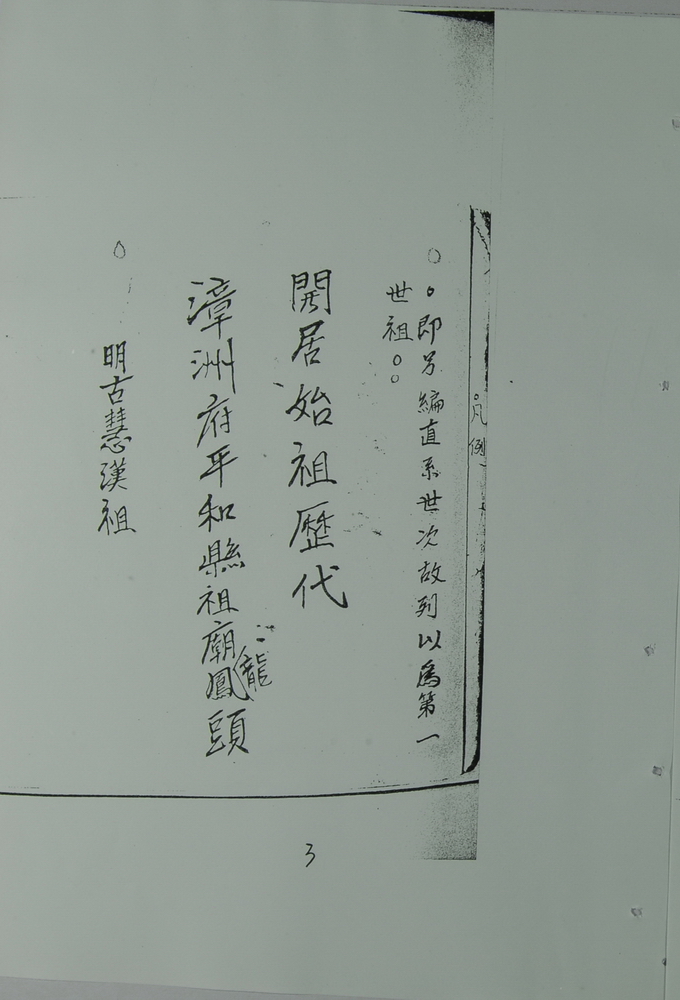 凡例
。即另編直系世次故列以為第一
世祖。。
開居始祖歷代
漳洲府平和縣祖廟鳳頭
龍
明古慧漢祖
3